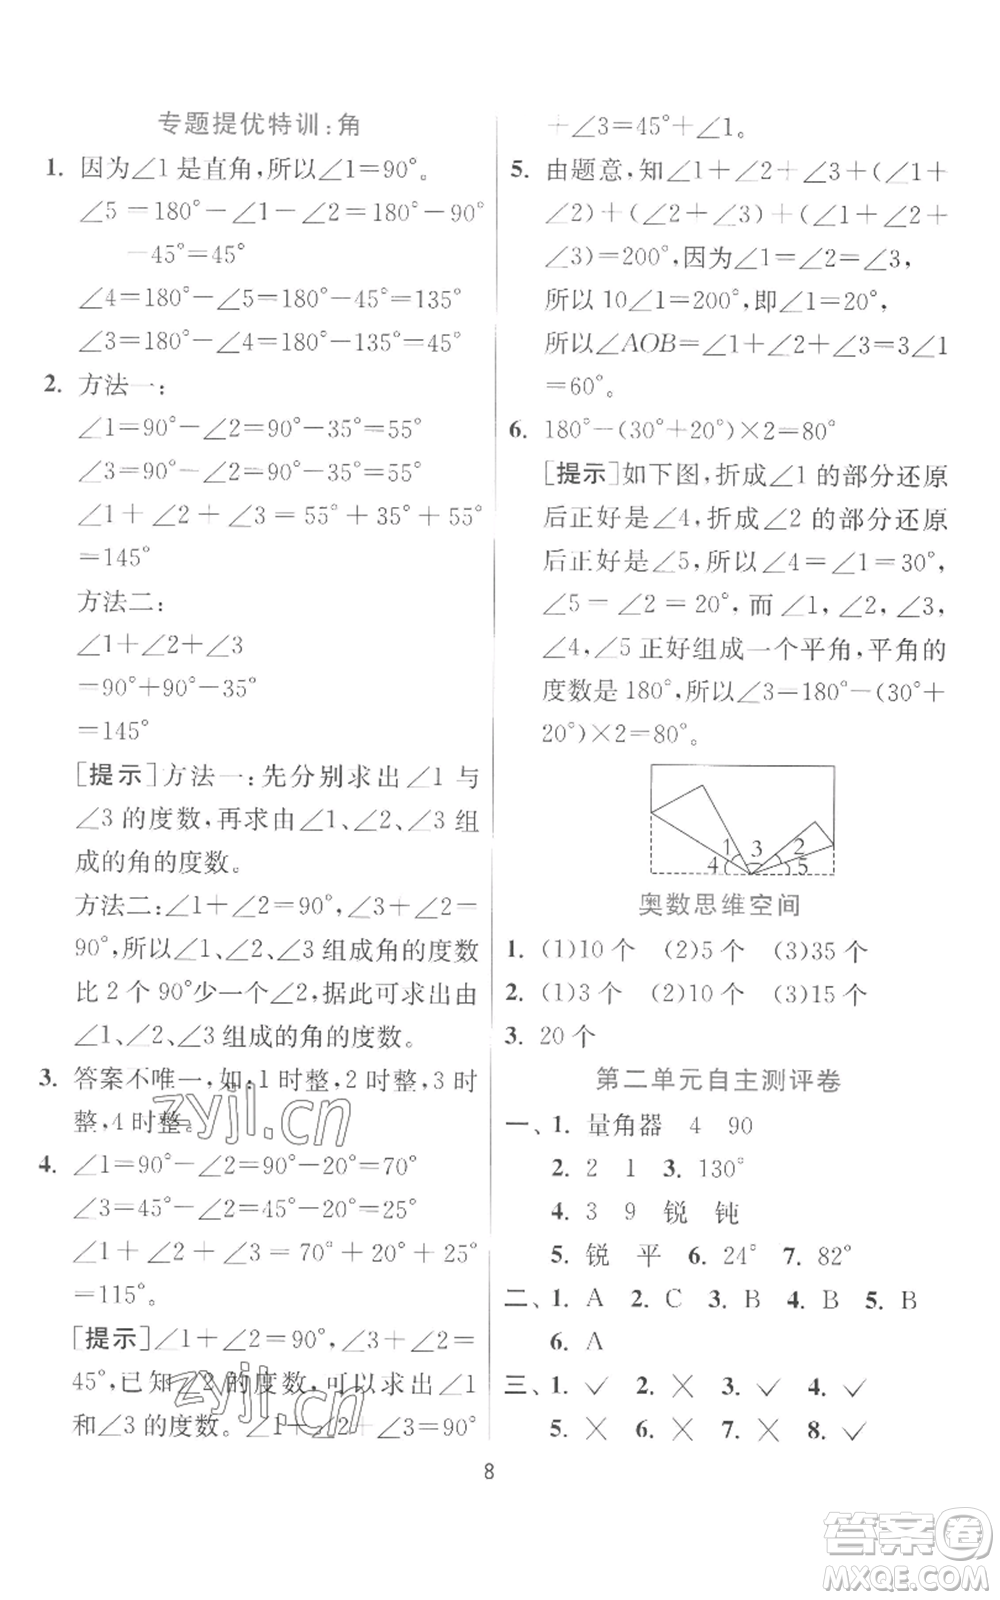 专题提优特训:角
1. 因为∠1是直角,所以∠1=90°。
∠5=180°-∠1-∠2=180°-90°
-45°=45°
∠4=180°-∠5=180°-45°=135°
∠3=180°-∠4=180°-135°=45°
2. 方法一:
∠1=90°-∠2=90°-35°=55°
∠3=90°-∠2=90°-35°=55°
∠1+∠2+∠3=55°+35°+55°
=145°
方法二:
∠1+∠2+∠3
=90°+90°-35°
=145°
[提示]方法一:先分别求出∠1与
∠3的度数,再求由∠1、∠2、∠3组
成的角的度数。
方法二:∠1+∠2=∠3+∠2=
90°,所以∠1、∠2、∠3组成角的度数
比2个90°少一个∠2,据此可求出由
∠1、∠2、∠3组成的角的度数。
3. 答案不唯一,如:1时整,2时整,3时
整,4时整。
4. ∠1=90°-∠2=90°-20°=70°
∠3=45°-∠2=45°-20°=25°
∠1+∠2+∠3=70°+20°+25°
=115°。
[提示]∠1+∠2=90°,∠3+∠2=
45°,已知∠2的度数,可以求出∠1
和∠3的度数。∠1+∠2+∠3=90°
+∠3=45°+∠1。
5. 由题意,知∠1+∠2+∠3+(∠1+
∠2)+(∠2+∠3)+(∠1+∠2+
∠3)=200°,因为∠1=∠2=∠3,
所以10∠1=200°,即∠1=20°,
所以∠AOB=∠1+∠2+∠3=3∠1
=60°。
6. 180°-(30°+20°)×2=80°
[提示]如下图,折成∠1的部分还原
后正好是∠4,折成∠2的部分还原
后正好是∠5,所以∠4=∠1=30°,
∠5=∠2=20°,而∠1,∠2,∠3,
∠4,∠5正好组成一个平角,平角的
度数是180°,所以∠3=180°-(30°+
20°)×2=80°。
1 3 2
4 5
奥数思维空间
1. (1)10个 (2)5个 (3)35个
2. (1)3个 (2)10个 (3)15个
3. 20个
第二单元自主测评卷
一、1. 量角器 4 90
2. 2 1 3. 130°
4. 3 9 锐 钝
5. 锐 平 6. 24° 7. 82°
二、1. A 2. C 3. B 4. B 5. B
6. A
三、1. ✓ 2. × 3. ✓ 4. ✓
5. × 6. × 7. × 8. ✓
8
zyjl.cn
zyjl.cn
答案圈
MXQE.COM